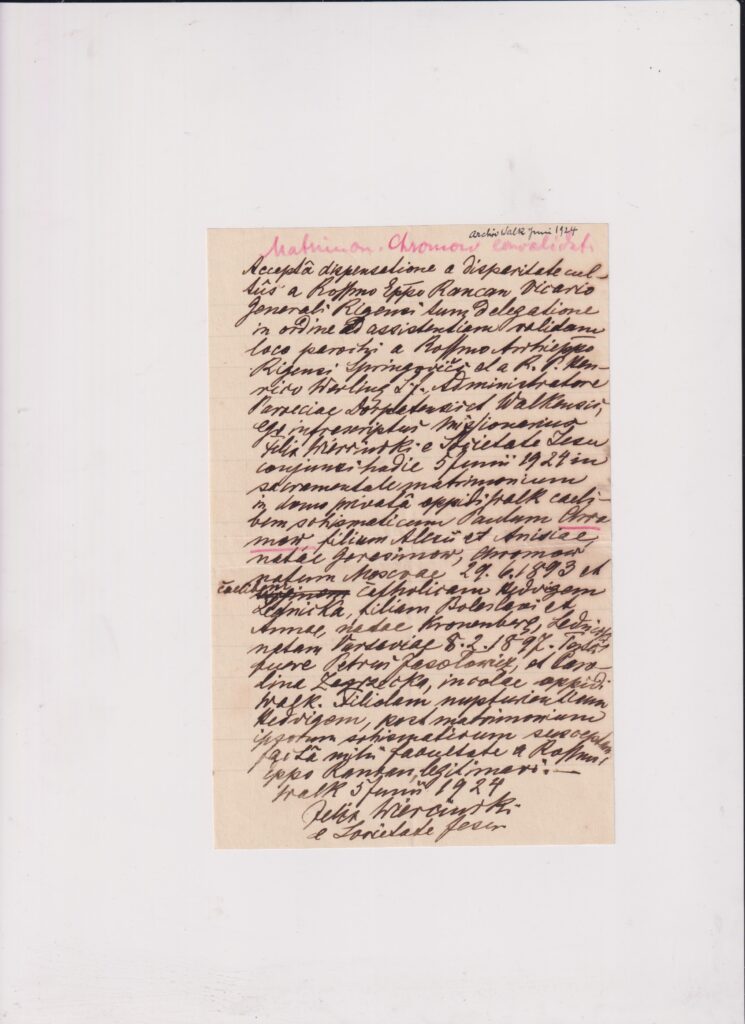 archiv Walk Juni 1924
Matrimon. Chromow convalidat.
Acceptâ dispensatione a disparitate cul-
tûs a Rssmo Eppo Rancan Vicario
Generali Rigensi tum delegatione
in ordine ad assistentiam validam
loco parochi a Rssmo Archieppo
Rigensi Springovičs et a R. P. Hen-
rico Werling S.J. Administratore
Paroeciae Dorpatensis et Walkensis,
Ego infrascriptus Missionarius
Felix Wierciński e Societate Jesu
conjunxi hodie 5 Junii 1924 in
sacramentale matrimonium
in domo privatâ oppidi Walk caeli-
bem schismaticum Paulum Chro
mow, filium Alexii et Anisiae,
natae Gerasimow, Chromow
natum Moscvae 29.6.1893 et
caelibem catholicam Hedvigem
Lednicka, filiam Boleslavi et
Annae, natae Kronenberg, Lednicki
natam Varsaviae 8.2.1897. Testes
fuere Petrus Jasołowicz, et Caro-
lina Zagrzecka, incolae oppidi
Walk. Filiolam nupturientium
Hedvigem, post matrimonium
ipsorum schismaticum susceptam
factâ mihi facultate a Rssmo
Eppo Rancan, legitimavi.—
Walk 5 Junii 1924
Felix Wierciński
e Societate Jesu